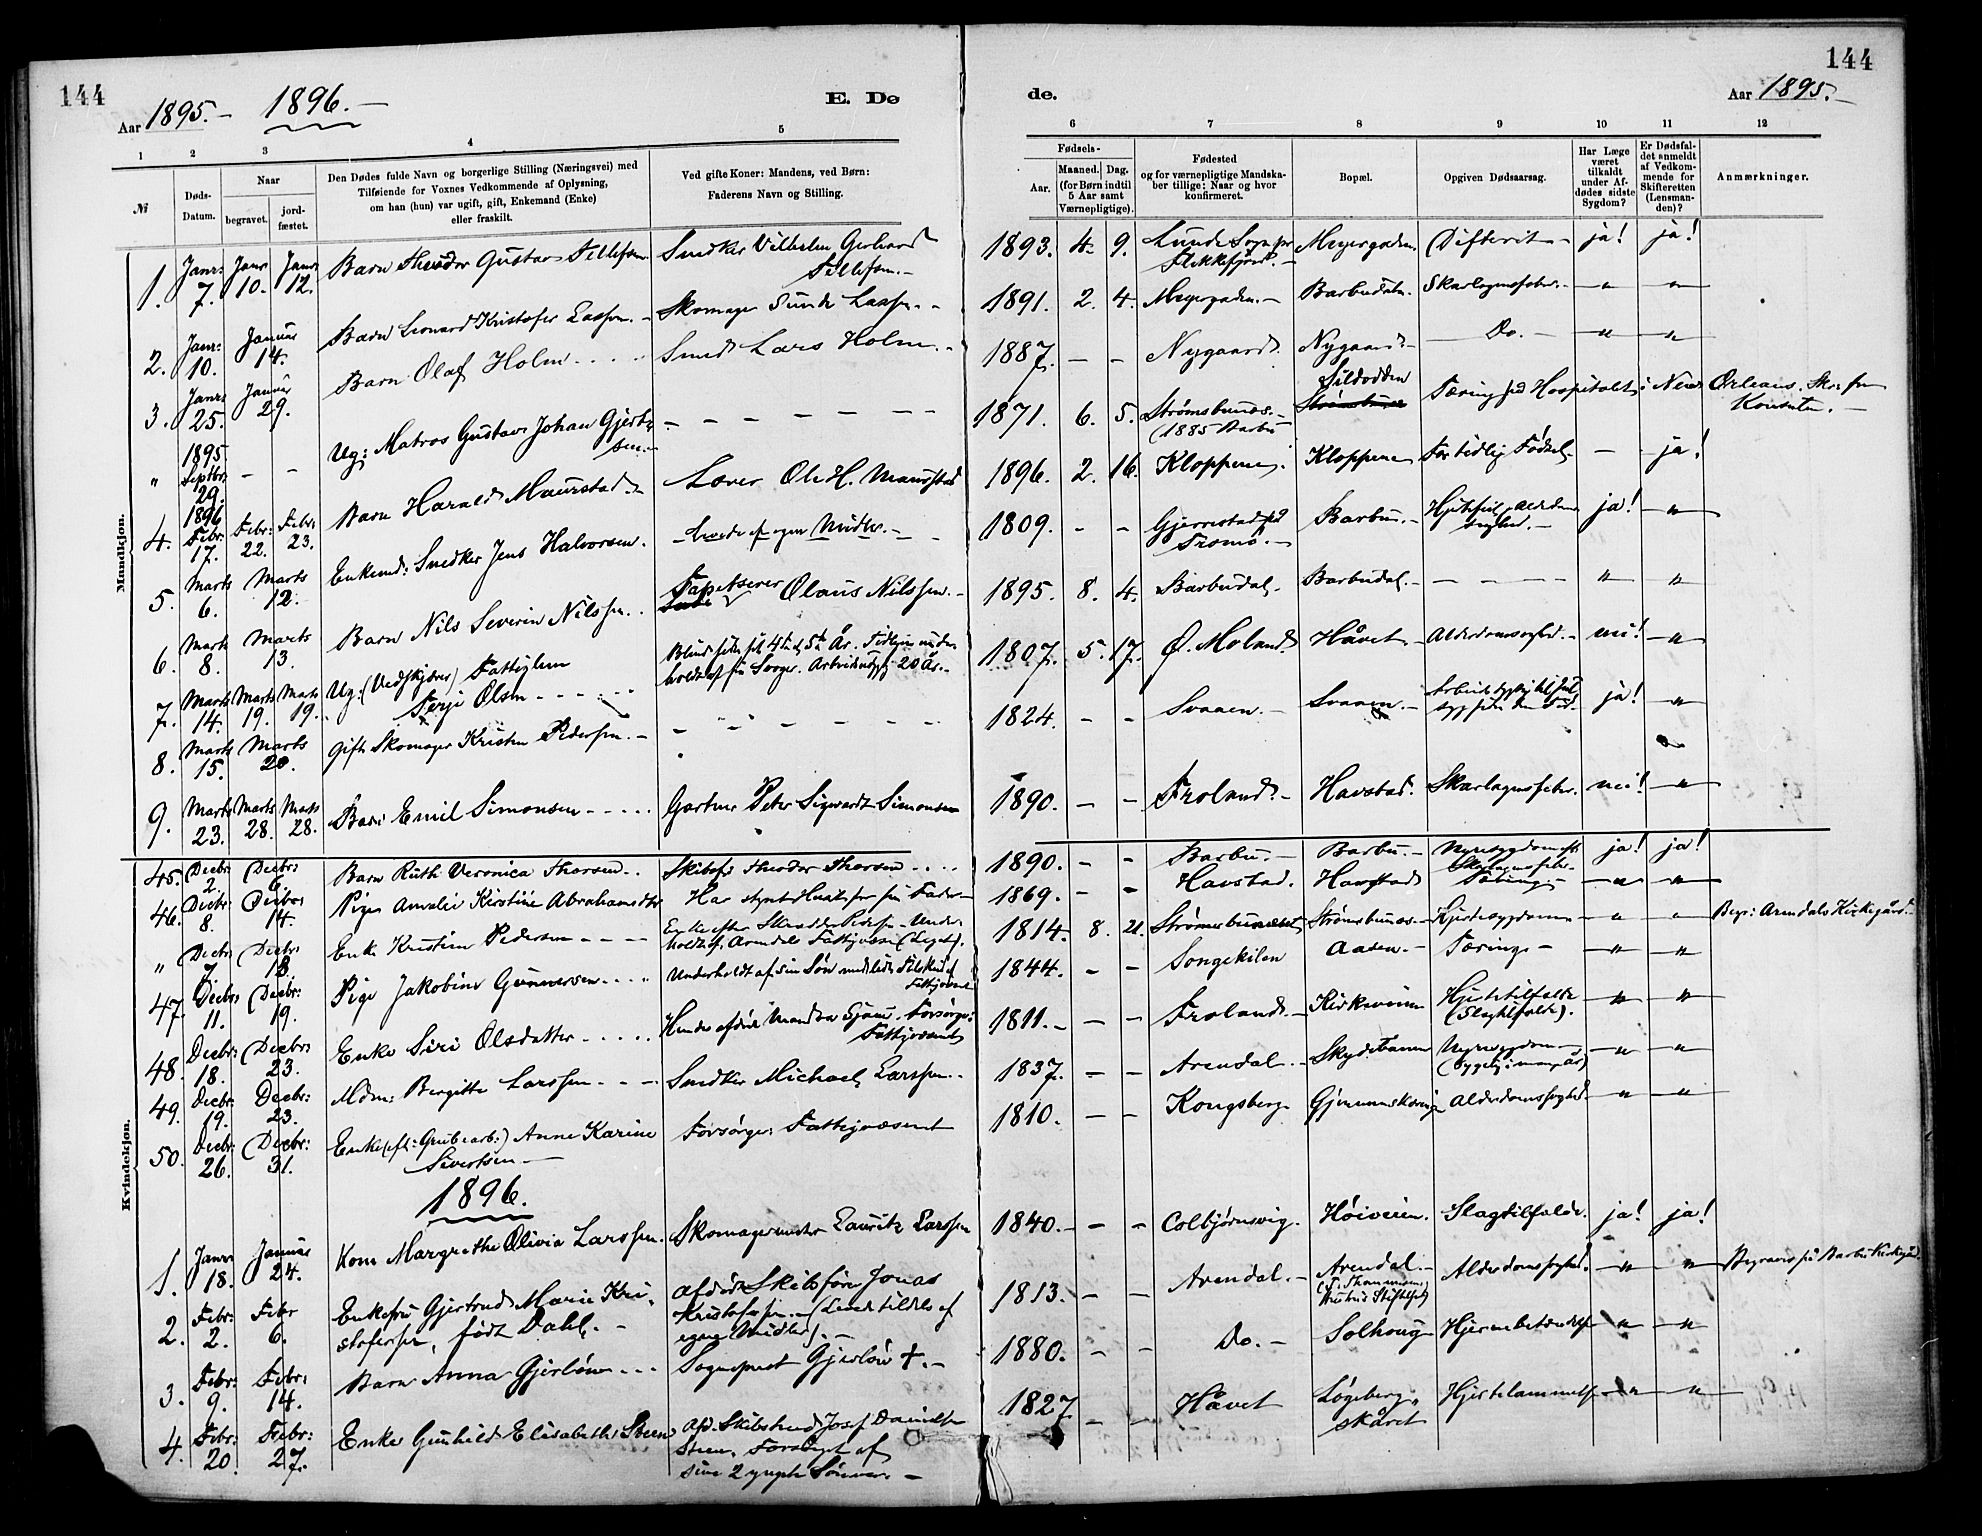 144
144
Aar 1895.— 1896.—
E. Dø
de.
Aar 1895.—
1 2 3 4 5
6 7 8 9 10 11 12
№
Døds-
Datum.
Naar
begravet.
jord-
fæstet.
Den Dødes fulde Navn og borgerlige Stilling (Næringsvei) med
Tilføiende for Voxnes Vedkommende af Oplysning,
om han (hun) var ugift, gift, Enkemand (Enke)
eller fraskilt.
Ved gifte Koner: Mandens, ved Børn:
Faderens Navn og Stilling.
Fødsels-
Aar.
Maaned. Dag.
(for Børn indtil
5 Aar samt
Værnepligtige).
Fødested
og for værnepligtige Mandska-
ber tillige: Naar og hvor
konfirmeret.
Bopæl.
Opgiven Dødsaarsag.
Har Læge
været
tilkaldt
under Af-
dødes sidste
Sygdom?
Er Dødsfal-
det anmeldt
af Vedkom-
mende for
Skifteretten
(Lensman-
den)?
Anmærkninger.
Mandkjøn.
1. Janr: 7. Janr 10. Janr 12. Barn Theodor Gustav Tellefsen Snedker Vilhelm Gerhard
Tellefsen.— 1893. 4. 9. Lunde Sogn pr
Flekkefjord.— Meyergaden. Difterit— ja! ja!
2. Janr: 10. Januar 14. Barn Leonard Kristofer Lassen.— Skomager Sunde Lassen.— 1891. 2. 4. Meyergaden.— Barbudalen. Skarlagensfeber.— " — " —
3. Janr: 25. Januar 29. Barn Olaf Holm — Smed Lars Holm.— 1887. — — Nygaard. Nygaard.— Do.— " — " —
" 1895 Septbr: 29. — — Ug: Matros Gustav Johan Gjert-
sen.— — — — 1871. 6. 5. Strømsbunes.—
(1885 Barbu— Sildodden
Tæring på Hospitalet i New Orleans.
4. 1896 Febr. 17. Febr: 22. Febr: 23. Barn Harald Maurstad.— Lærer Ole H. Maurstad 1896. 2. 16. Kloppene. Kloppene For tidlig Fødsel.— — ja!
5. Marts 6. Marts 12. Enkemd: Snedker Jens Halvorsen. Levede af egne Midler.— 1809. — — Gjerrestad på
Tromø.— Barbu.— ja! — " —
6. Marts 8. Marts 13. Barn Nils Severin Nilssen. Tapetserer Olaus Nilssen.— 1895. 8. 4. Barbudal. Barbudal.— — — " — " —
7. Marts 14. Marts 19. Marts 19. Ug: (Vedskjærer) Fattiglem
Terje Olsen — 1807. 5. 17. Ø. Moland. Håvet— Alderdomssvaghed.— nei! — " —
8. Marts 15. Marts 20. Gift Skomager Kristen Pedersen.— — — 1824. — — Svaaen.— Svaaen.— ja! — " —
9. Marts 23. Marts 28. Marts 28. Barn Emil Simonsen — Gartner Peter Sigvardt Simonsen 1890. — — Froland.— Havstad. Skarlagensfeber. nei! — " —
Kvindekjøn.
45. Decbr: 2. Decbr: 6. Barn Ruth Veronica Thorsen.. Skibsfr Theodor Thorsen 1890. — — Barbu.— Barbu.— Nyresygdom eft.
Skarlagensfeber. ja! ja!
46. Decbr: 8. Decbr: 14. Pige Amalie Kirstine Abrahamsdtr Har styret Huset for sin Fader 1869. — — Havstad. Havstad Tæring— " — " —
" Decbr: 7. Decbr: 13. Enke Kristine Pedersen — Enke efter Skrædder Pedersen. Under-
holdt af Arendals Fattigvæsen (Leget). 1814. 8. 21. Strømsbunæset Strømsbunes.— Hjertesygdom " — " — Begr: Arendals Kirkegård.
47. Decbr: 11. Decbr: 19. Pige Jakobine Gunnersen.. Underholdt af sin Søn med lidt Tilskud af
Fattigvæsenet 1844. — — Songekilen Aasen.— Tæring— " — " —
48. Decbr: 18. Decbr: 23. Enke Siri Olsdatter.... Forsørget:
Fattigvæsenet 1811.— — — Froland.— Kirkeveien Hjertetilfælde
(Slagtilfælde). " — " —
49. Decbr: 19. Decbr: 23. Mdm: Bergitte Larssen — Snedker Michael Larssen.. 1837. — — Arendal.— Skydebanen Nyresygdom—
" — " —
50. Decbr: 26. Decbr: 31. Enke (eft: Grubearb:) Anne Karine
Sivertsen— Forsørger: Fattigvæsenet 1810. — — Kongsberg Alderdomssvaghed. " — " —
1896.
1. Janr: 18. Januar 24. Kone Margrethe Olivia Larssen. Skomagermester Lauritz Larssen 1840.— — — Colbjørnsvig. Høiveien. Slagtilfælde. ja! ja!
2. Febr: 2. Febr 6. Enkefru Gjertrud Marie Kri-
stofersen, født Dahl.— Afdød Skibsfører Jonas
Kristofersen.— (Levede tildels af
egne Midler).— 1813.— — Arendal.— Arendal.—
Alderdomssvaghed. " — " — Begraves på Barbu Kirkegård
3. Febr: 9. Febr: 14. Barn Anna Gjerløw... Sogneprest Gjerløw †.— 1880. — — Do.— Solhoug Hjernebetændelse " — " —
4. Febr: 20. Febr: 27. Enke Gunhild Elisabeth Steen Afd. Skibstmd Josef Danielsen
Steen. Forsørget af
sine 2 yngste Sønner.— 1827 — — Håvet Løgeberg-
skåret Hjertelammelse " — " —